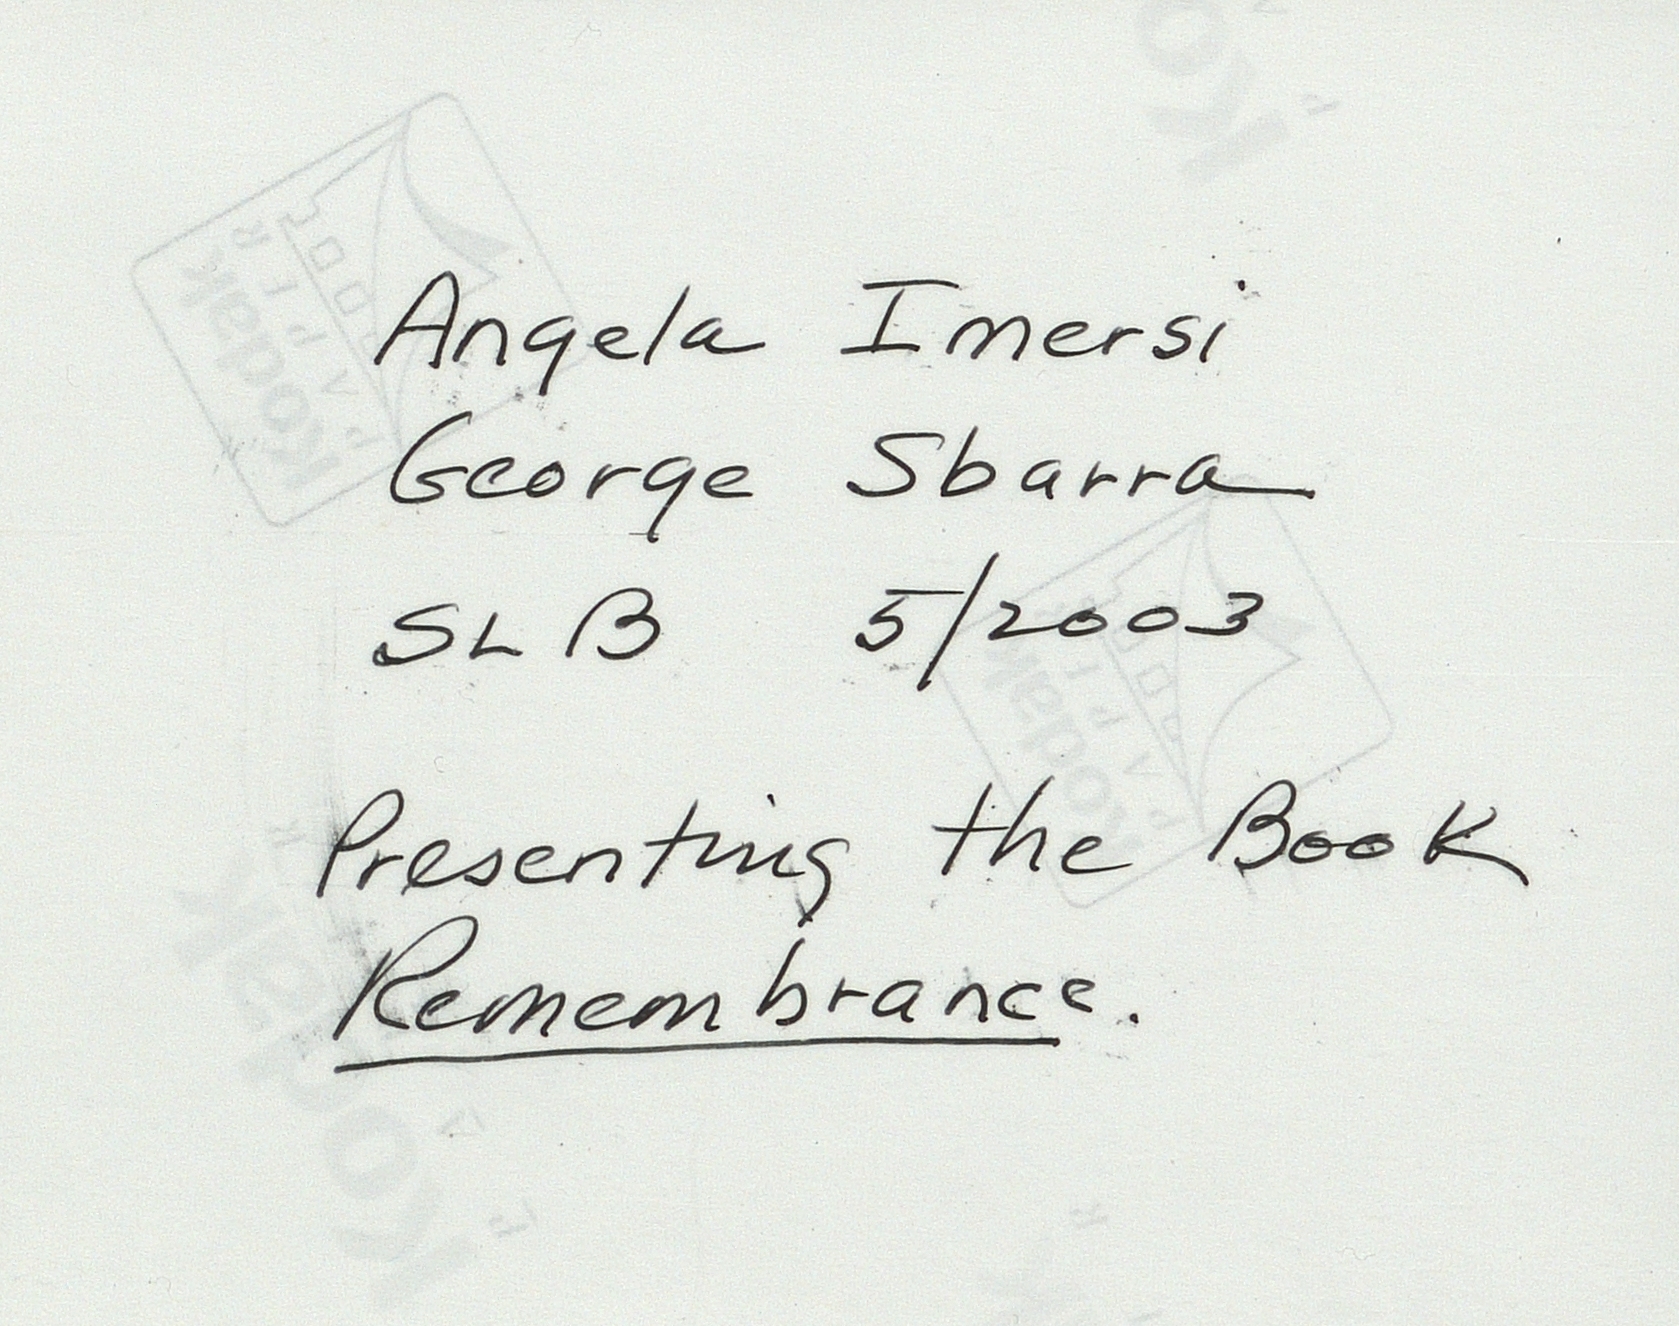 Angela Imersi
George Sbarra
SLB 5/2003
Presenting the Book
Remembrance.
Kodak
Kodak
Kodak